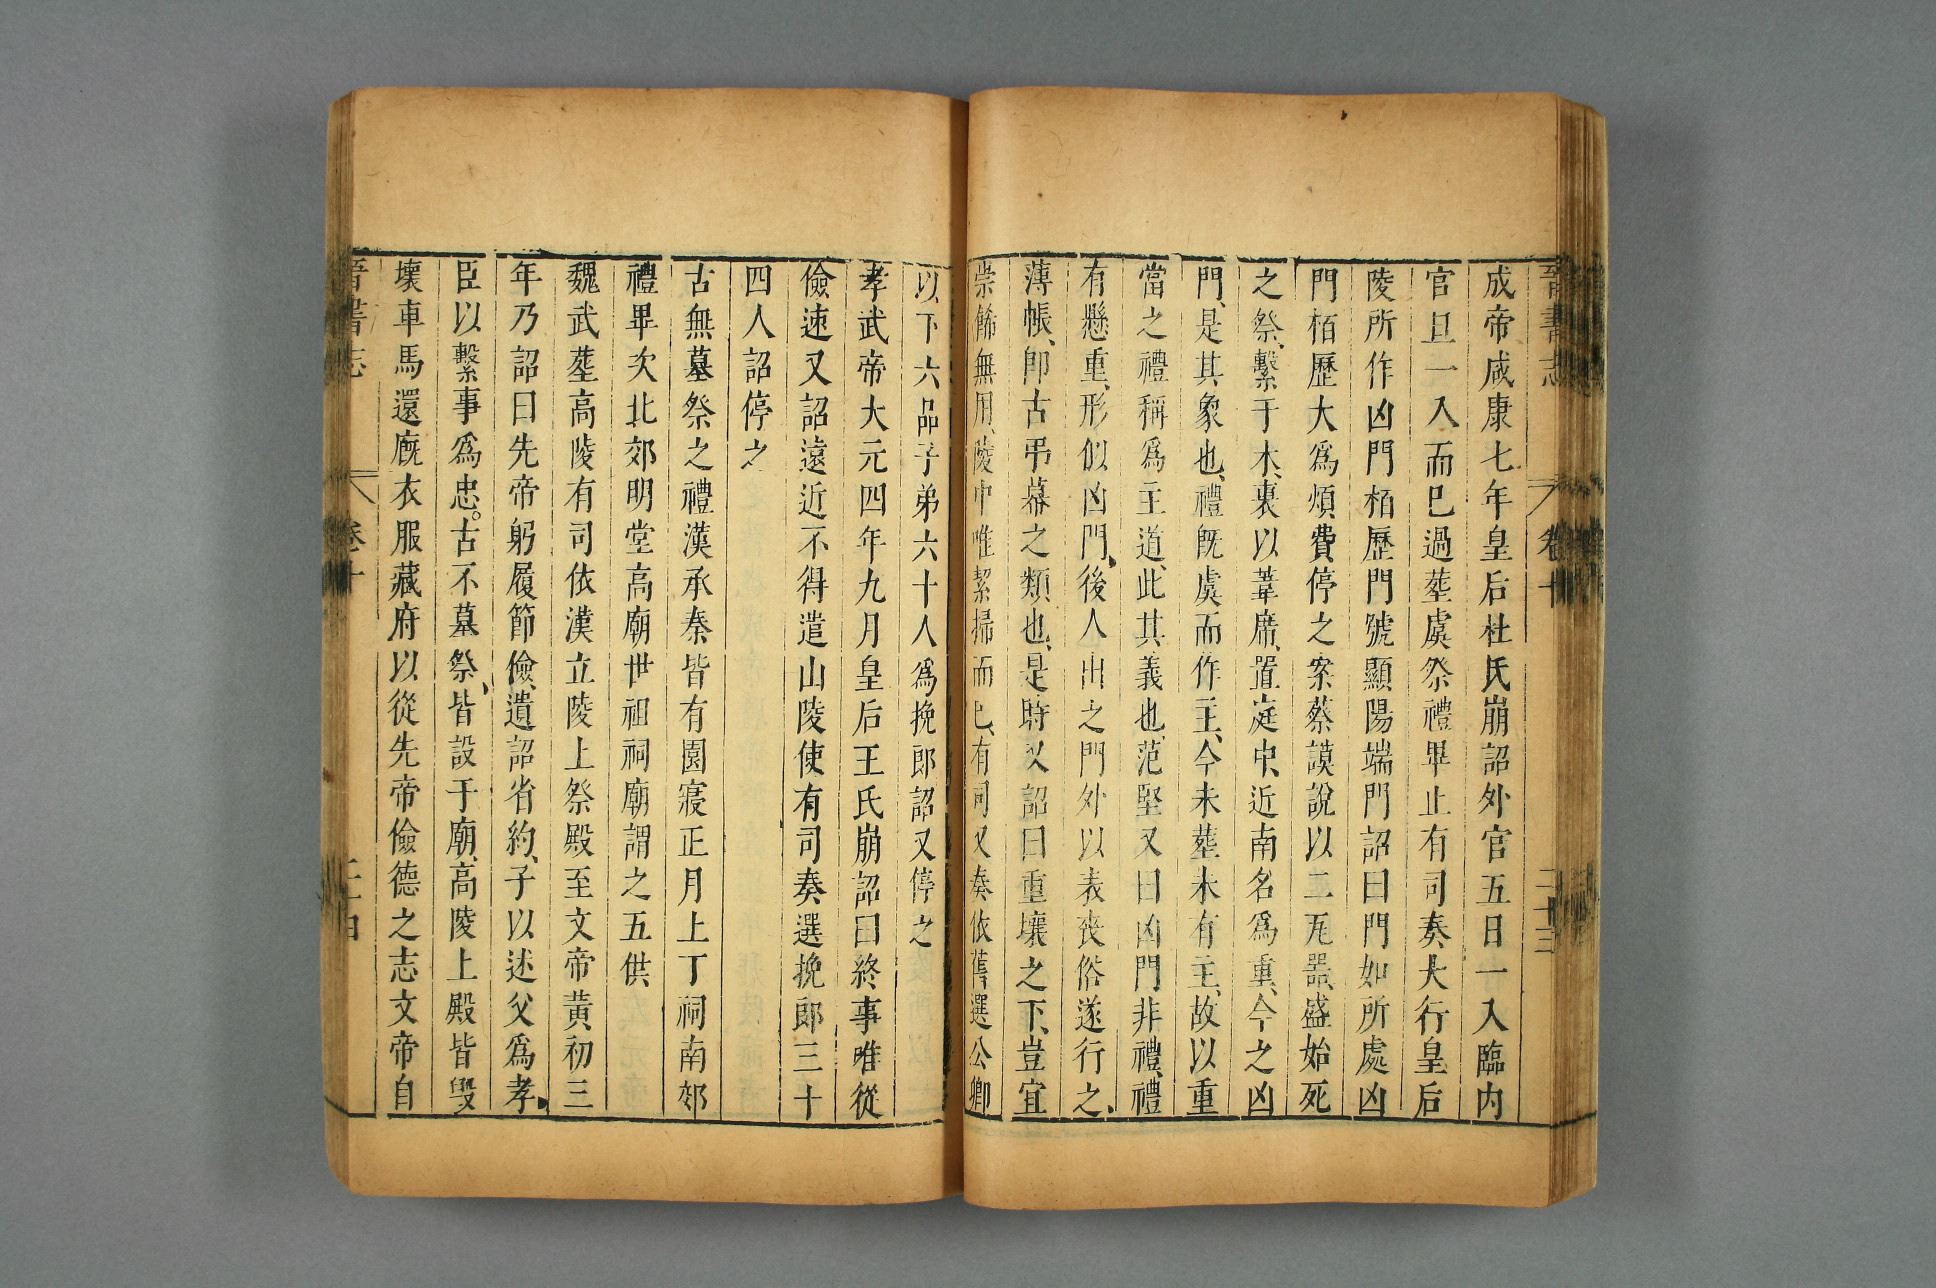 晉書志 卷十 二十三
成帝咸康七年皇后杜氏崩詔外官五日一入臨内
官旦一入而已過葬虞祭禮畢止有司奏大行皇后
陵所作凶門栢歷門號顯陽端門詔曰門如所處凶
門栢歷大爲煩費停之案蔡謨說以二瓦器盛始死
之祭、繫于木、裹以葦席、置庭中、近南名爲重、今之凶
門、是其象也、禮旣虞而作主、今未葬未有主、故以重
當之禮稱爲主道、此其義也、范堅又曰凶門非禮、禮
有懸重、形似凶門、後人出之門外以表喪俗遂行之、
薄帳、卽古弔幕之類也、是時又詔曰重壤之下、豈宜
崇飾無用、陵中唯絜掃而已、有司又奏依舊選公卿
以下六品子弟六十人爲挽郎詔又停之
孝武帝大元四年九月皇后王氏崩詔曰終事唯從
儉速又詔遠近不得遣山陵使有司奏選挽郎二十
四人詔停之
古無墓祭之禮漢承秦皆有園寢正月上丁祠南郊
禮畢次北郊明堂高廟世祖祠廟謂之五供
魏武葬高陵有司依漢立陵上祭殿至文帝黃初三
年乃詔曰先帝躬履節儉、遺詔省約、子以述父爲孝、
臣以繫事爲忠。古不墓祭、皆設于廟、高陵上殿皆毁
壞車馬還廐衣服藏府以從先帝儉德之志文帝自
晉書志 卷十 二十四